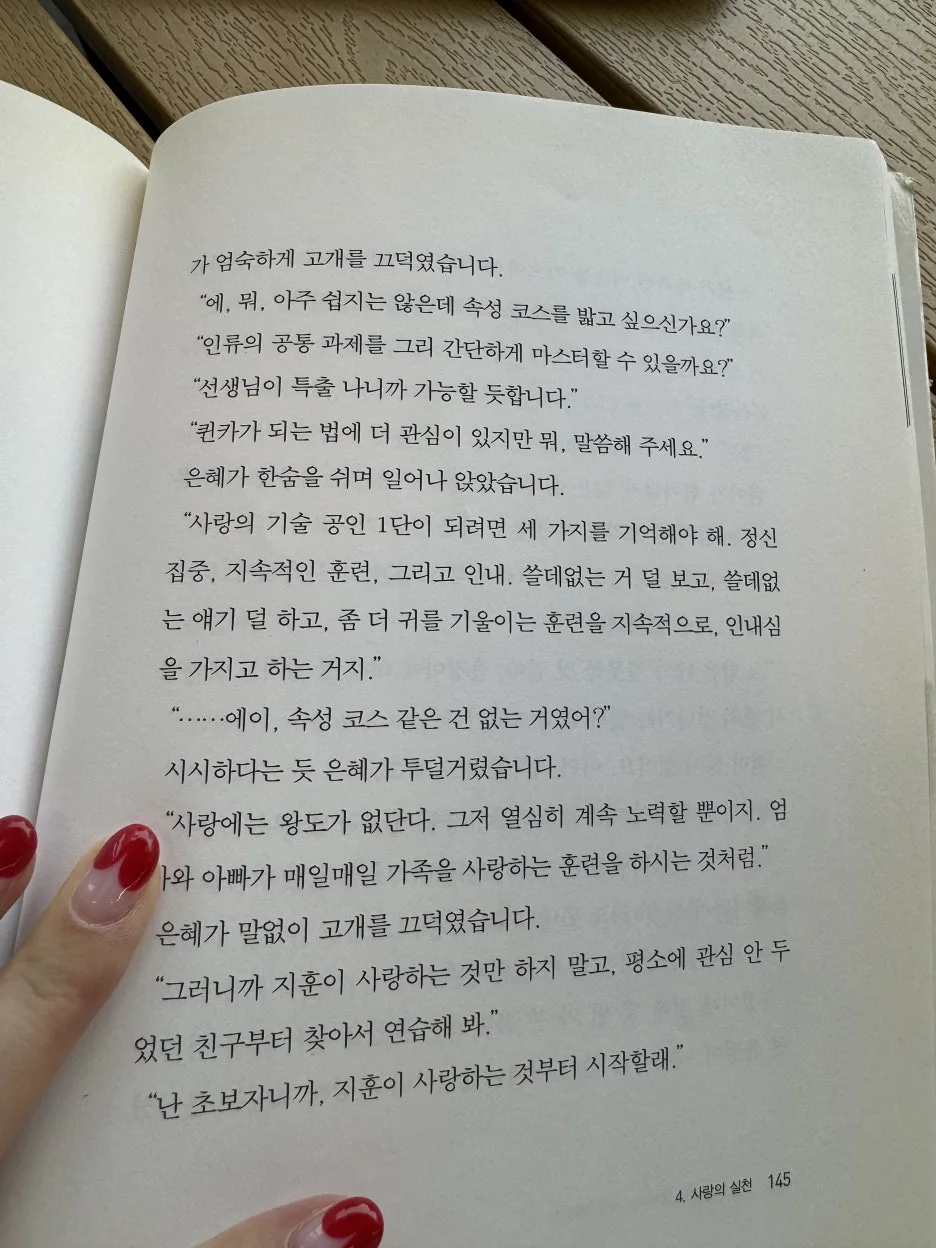 가 엄숙하게 고개를 끄덕였습니다.
“에, 뭐, 아주 쉽지는 않은데 속성 코스를 밟고 싶으신가요?”
“인류의 공통 과제를 그리 간단하게 마스터할 수 있을까요?”
“선생님이 특출 나니까 가능할 듯합니다.”
“퀸카가 되는 법에 더 관심이 있지만 뭐, 말씀해 주세요.”
은혜가 한숨을 쉬며 일어나 앉았습니다.
“사랑의 기술 공인 1단이 되려면 세 가지를 기억해야 해. 정신
집중, 지속적인 훈련, 그리고 인내. 쓸데없는 거 덜 보고, 쓸데없
는 얘기 덜 하고, 좀 더 귀를 기울이는 훈련을 지속적으로, 인내심
을 가지고 하는 거지.”
“……에이, 속성 코스 같은 건 없는 거였어?”
시시하다는 듯 은혜가 투덜거렸습니다.
“사랑에는 왕도가 없단다. 그저 열심히 계속 노력할 뿐이지. 엄
마와 아빠가 매일매일 가족을 사랑하는 훈련을 하시는 것처럼.”
은혜가 말없이 고개를 끄덕였습니다.
“그러니까 지훈이 사랑하는 것만 하지 말고, 평소에 관심 안 두
었던 친구부터 찾아서 연습해 봐.”
“난 초보자니까, 지훈이 사랑하는 것부터 시작할래.”
4. 사랑의 실천 145